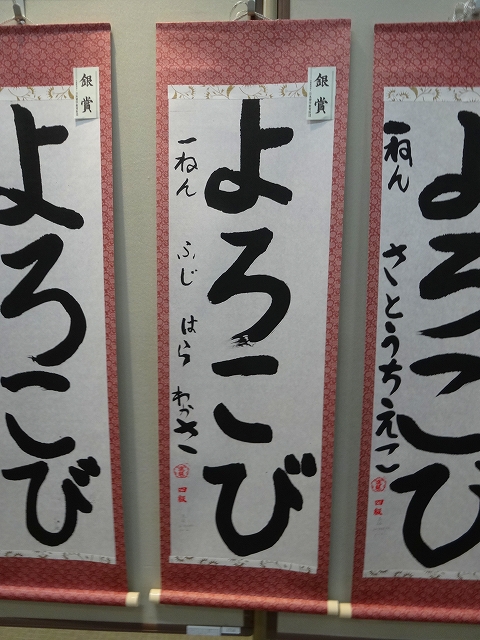 銀賞
よろこび
一ねん さとうちえこ
四級
銀賞
よろこび
一ねん ふじはら わかさこ
四級
銀賞
よろこび